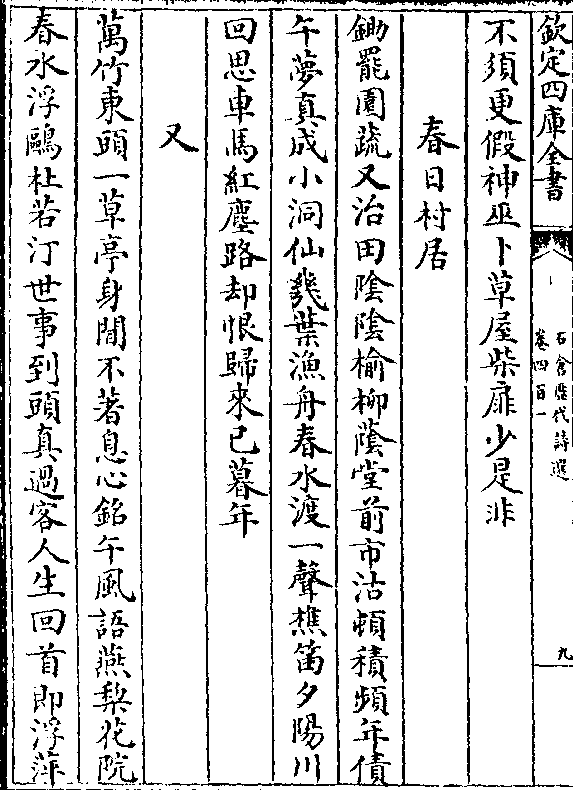 欽定四庫全書
石倉歷代詩選
卷四百一
九
不須更假神巫卜草屋柴扉少是非
春日村居
鋤罷園蔬又治田陰陰榆柳蔭堂前市沽頓積頻年債
午夢真成小洞仙幾葉漁舟春水渡一聲樵笛夕陽川
回思車馬紅塵路却恨歸來已暮年
又
萬竹東頭一草亭身閒不著息心銘午風語燕梨花院
春水浮鷗杜若汀世事到頭真過客人生回首即浮萍